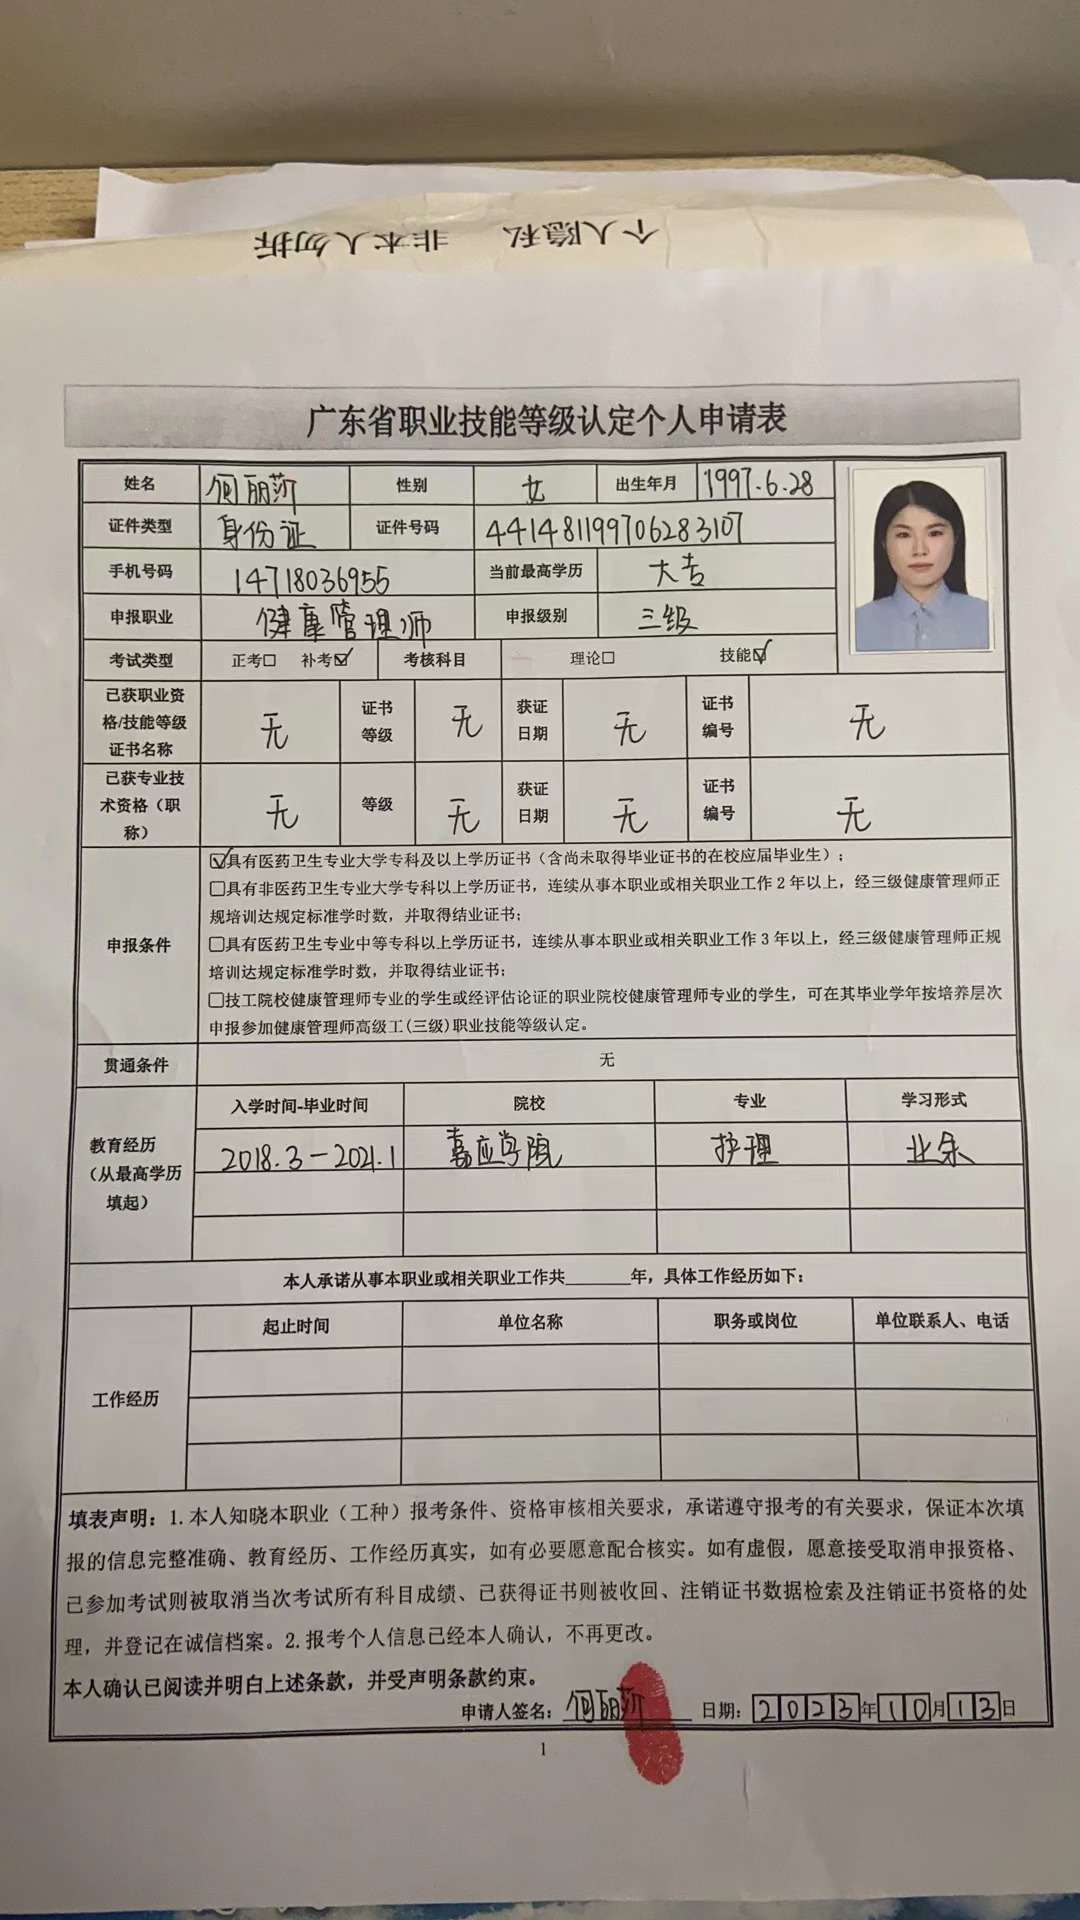 个人隐私 非本人勿拆
广东省职业技能等级认定个人申请表
姓名 何丽莎 性别 女 出生年月 1997.6.28
证件类型 身份证 证件号码 441481199706283107
手机号码 14718036955 当前最高学历 大专
申报职业 健康管理师 申报级别 三级
考试类型 正考☐ 补考☑ 考核科目 理论☐ 技能☑
已获职业资格/技能等级证书名称 无 证书等级 无 获证日期 无 证书编号 无
已获专业技术资格（职称） 无 等级 无 获证日期 无 证书编号 无
申报条件
☑具有医药卫生专业大学专科及以上学历证书（含尚未取得毕业证书的在校应届毕业生）；
☐具有非医药卫生专业大学专科以上学历证书，连续从事本职业或相关职业工作2年以上，经三级健康管理师正
规培训达规定标准学时数，并取得结业证书；
☐具有医药卫生专业中等专科以上学历证书，连续从事本职业或相关职业工作3年以上，经三级健康管理师正规
培训达规定标准学时数，并取得结业证书；
☐技工院校健康管理师专业的学生或经评估论证的职业院校健康管理师专业的学生，可在其毕业学年按培养层次
申报参加健康管理师高级工(三级)职业技能等级认定。
贯通条件 无
教育经历（从最高学历填起）
入学时间-毕业时间 院校 专业 学习形式
2018.3-2021.1 嘉应学院 护理 业余
本人承诺从事本职业或相关职业工作共______年，具体工作经历如下：
工作经历
起止时间 单位名称 职务或岗位 单位联系人、电话
填表声明：1.本人知晓本职业（工种）报考条件、资格审核相关要求，承诺遵守报考的有关要求，保证本次填
报的信息完整准确、教育经历、工作经历真实，如有必要愿意配合核实。如有虚假，愿意接受取消申报资格、
已参加考试则被取消当次考试所有科目成绩、已获得证书则被收回、注销证书数据检索及注销证书资格的处
理，并登记在诚信档案。2.报考个人信息已经本人确认，不再更改。
本人确认已阅读并明白上述条款，并受声明条款约束。
申请人签名：何丽莎 日期：2023年10月13日
1